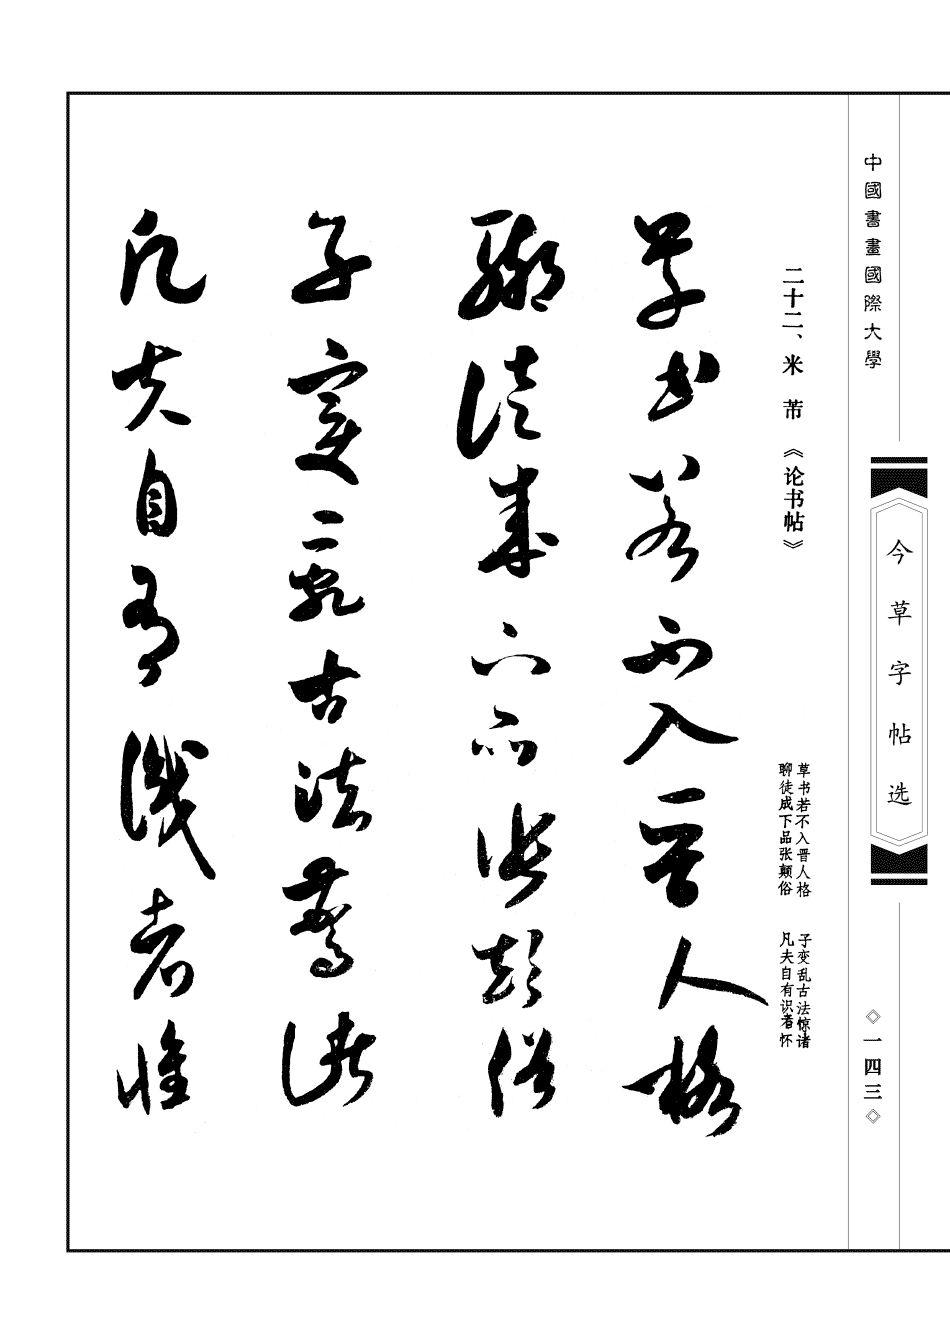 中國書畫國際大學
今草字帖选
◇一四三◇
二十二、米 芾 《论书帖》
草书若不入晋人格 子变乱古法惊诸
聊徒成下品张颠俗 凡夫自有识者怀
草書若不入晉人格
聊徒成下品張顛俗
子變亂古法驚諸
凡夫自有識者惟